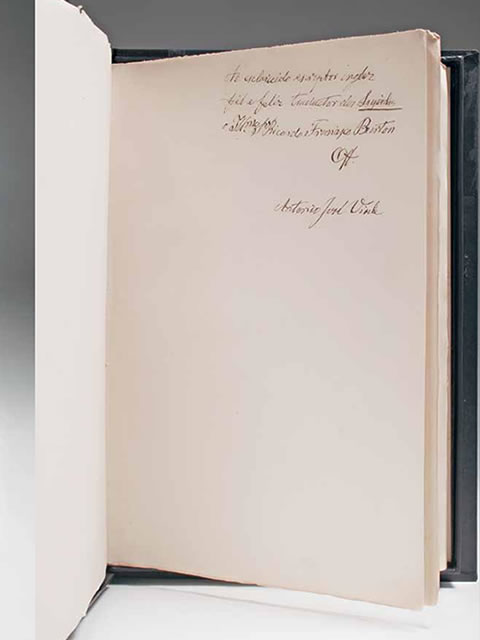 Ao esclarecido escriptor inglez
fiel e feliz traductor dos Lusiadas
o Illmo. Sr. Ricardo Francisco Burton
Off.
Antonio José Viale